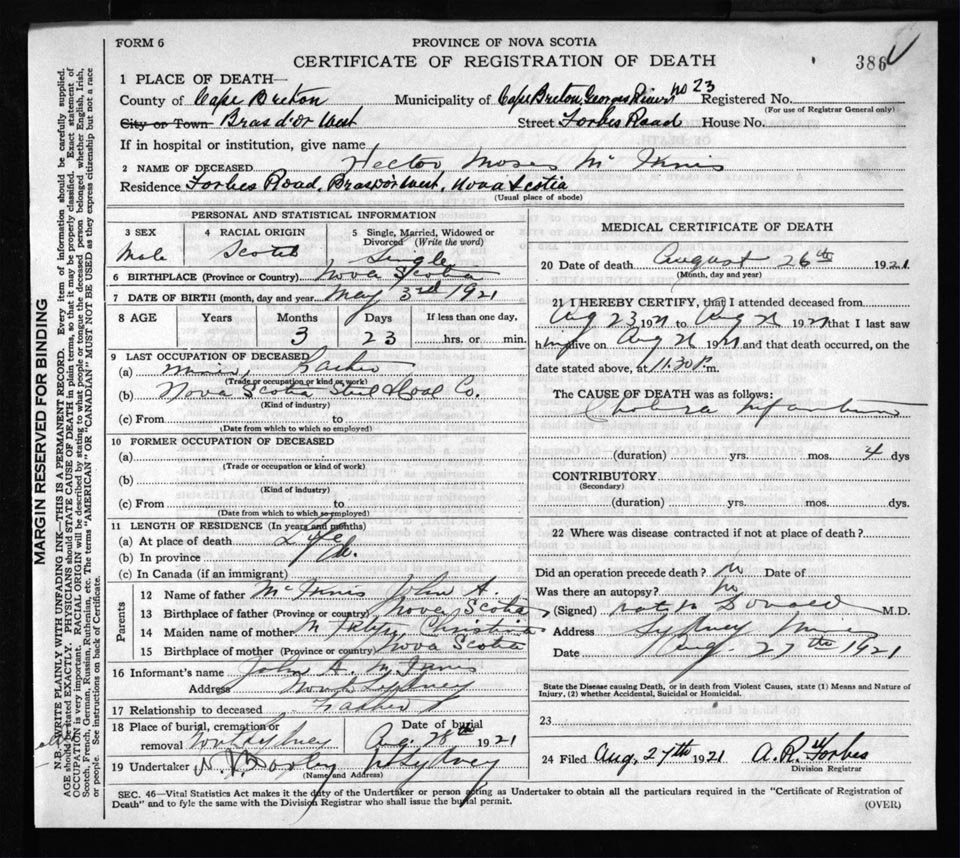 FORM 6
PROVINCE OF NOVA SCOTIA
CERTIFICATE OF REGISTRATION OF DEATH
386
1 PLACE OF DEATH—
County of Cape Breton Municipality of Cape Breton, Georges River no 23 Registered No.
(For use of Registrar General only)
City or Town Bras d'or West Street Forbes Road House No.
If in hospital or institution, give name
2 NAME OF DECEASED Hector Moses McInnis
Residence Forbes Road, Bras d'or West, Nova Scotia
(Usual place of abode)
PERSONAL AND STATISTICAL INFORMATION
3 SEX
Male
4 RACIAL ORIGIN
Scotch
5 Single, Married, Widowed or
Divorced (Write the word)
Single
6 BIRTHPLACE (Province or Country) Nova Scotia
7 DATE OF BIRTH (month, day and year) May 3rd 1921
8 AGE Years Months Days If less than one day,
3 23 hrs. or min.
9 LAST OCCUPATION OF DECEASED
(a) Father
(Trade or occupation or kind of work)
(b) Nova Scotia Steel & Coal Co.
(Kind of industry)
(c) From
(Date from which to which so employed)
10 FORMER OCCUPATION OF DECEASED
(a)
(Trade or occupation or kind of work)
(b)
(Kind of industry)
(c) From
(Date from which to which so employed)
11 LENGTH OF RESIDENCE (In years and months)
(a) At place of death Life
(b) In province do.
(c) In Canada (if an immigrant)
Parents
12 Name of father McInnis John A.
13 Birthplace of father (Province or country) Nova Scotia
14 Maiden name of mother Christina
15 Birthplace of mother (Province or country) Nova Scotia
16 Informant's name John A. McInnis
Address North Sydney
17 Relationship to deceased Father
18 Place of burial, cremation or
removal Sydney
Date of burial
Aug. 28th 1921
19 Undertaker N. Sydney
(Name and Address)
MEDICAL CERTIFICATE OF DEATH
20 Date of death August 26th 1921
(Month, day and year)
21 I HEREBY CERTIFY, that I attended deceased from
Aug 23 1921 to Aug 26 1921 that I last saw
him alive on Aug 26 1921 and that death occurred, on the
date stated above, at 11.30 P.m.
The CAUSE OF DEATH was as follows:
Cholera Infantum
(duration) yrs. mos. 4 dys
CONTRIBUTORY
(Secondary)
(duration) yrs. mos. dys.
22 Where was disease contracted if not at place of death?
Did an operation precede death? no Date of
Was there an autopsy? no
(Signed) Donald M.D.
Address Sydney Mines
Date Aug. 27th 1921
State the Disease causing Death, or in death from Violent Causes, state (1) Means and Nature of
Injury, (2) whether Accidental, Suicidal or Homicidal.
23
24 Filed Aug, 27th 1921 A. R. Forbes
Division Registrar
SEC. 46—Vital Statistics Act makes it the duty of the Undertaker or person acting as Undertaker to obtain all the particulars required in the "Certificate of Registration of
Death" and to fyle the same with the Division Registrar who shall issue the burial permit.
(OVER)
MARGIN RESERVED FOR BINDING
N.B.—WRITE PLAINLY WITH UNFADING INK—THIS IS A PERMANENT RECORD. Every item of information should be carefully supplied.
AGE should be stated EXACTLY. PHYSICIANS should STATE CAUSE OF DEATH in plain terms, so that it may be properly classified. Exact statement of
OCCUPATION is very important. RACIAL ORIGIN will be described by stating to what people or tongue the deceased person belonged whether English, Irish,
Scotch, French, German, Russian, Ruthenian, etc. The terms "AMERICAN" OR "CANADIAN" MUST NOT BE USED as they express citizenship but not a race
or people. See instructions on back of Certificate.